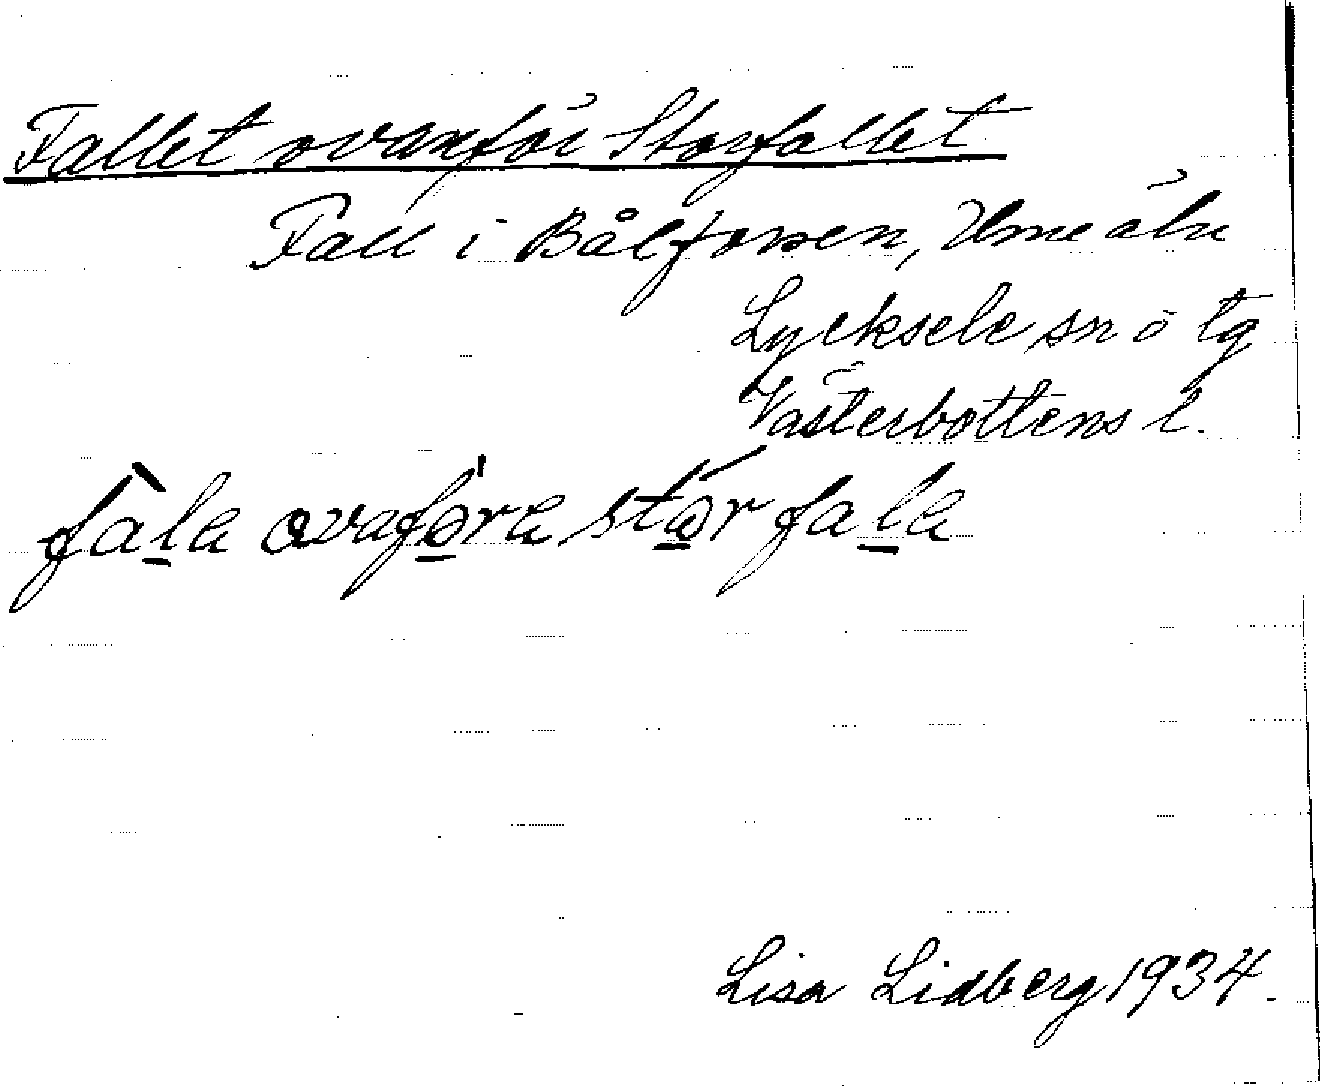 Fallet ovanför Storfallet
Fall i Bålforsen, Umeälv
Lycksele sn o tg
Västerbottens l.
fàla ovaföra stórfala
Lisa Lidberg 1934.